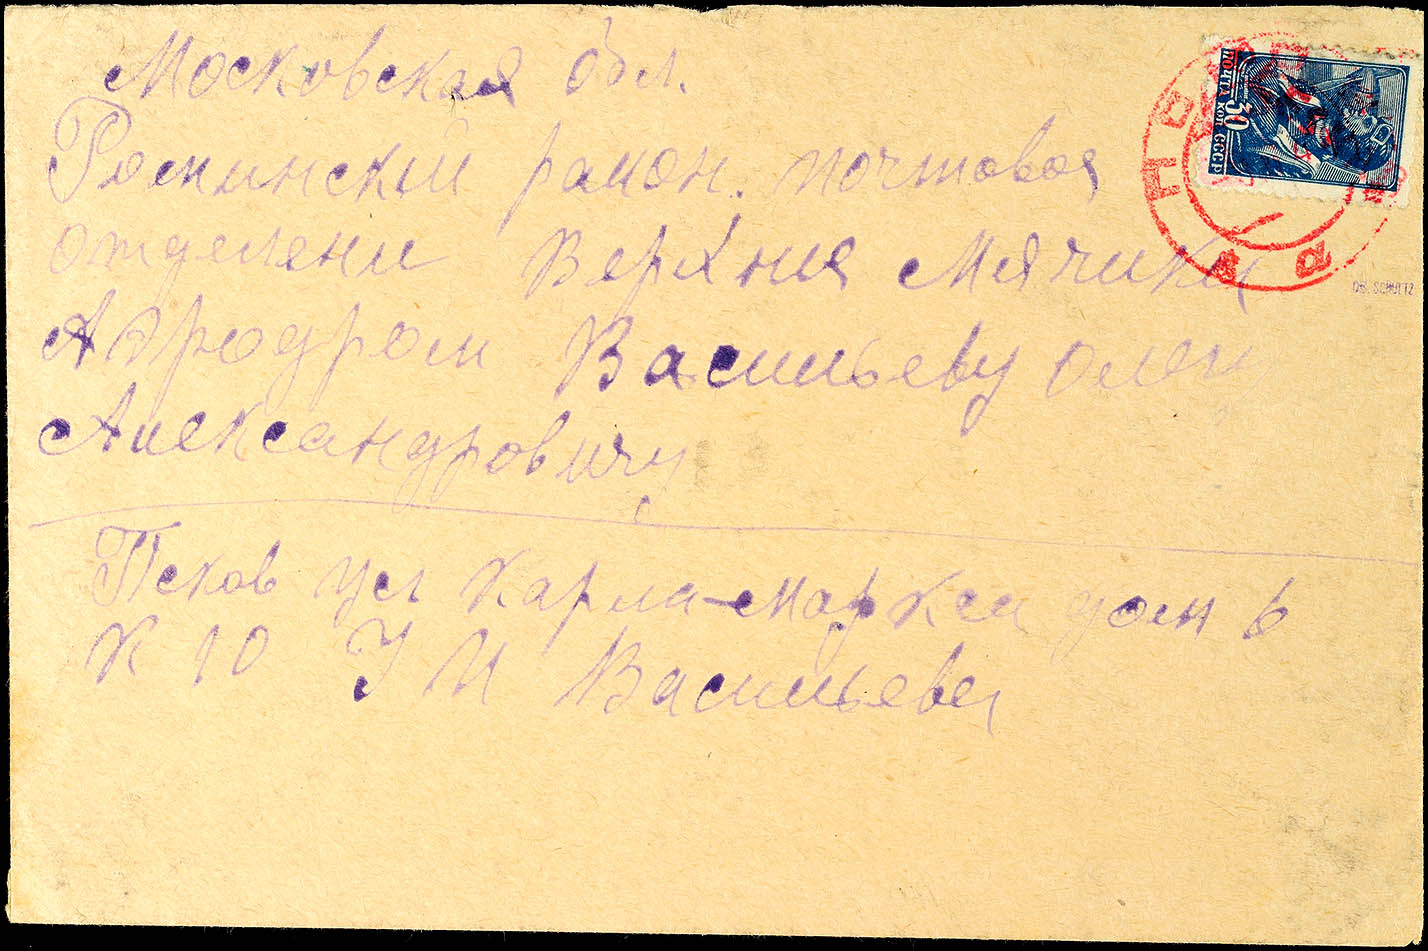 Московская обл.
Роминский рамон. почтовоя
отделени Верхния Мячики
Аэродром Васильеву
Александровичу
Псков ул Карла-Маркса дом 6
К 10 У И Васильева
ПОЧТА
30 КОП
СССР
DR. SCHULTZ